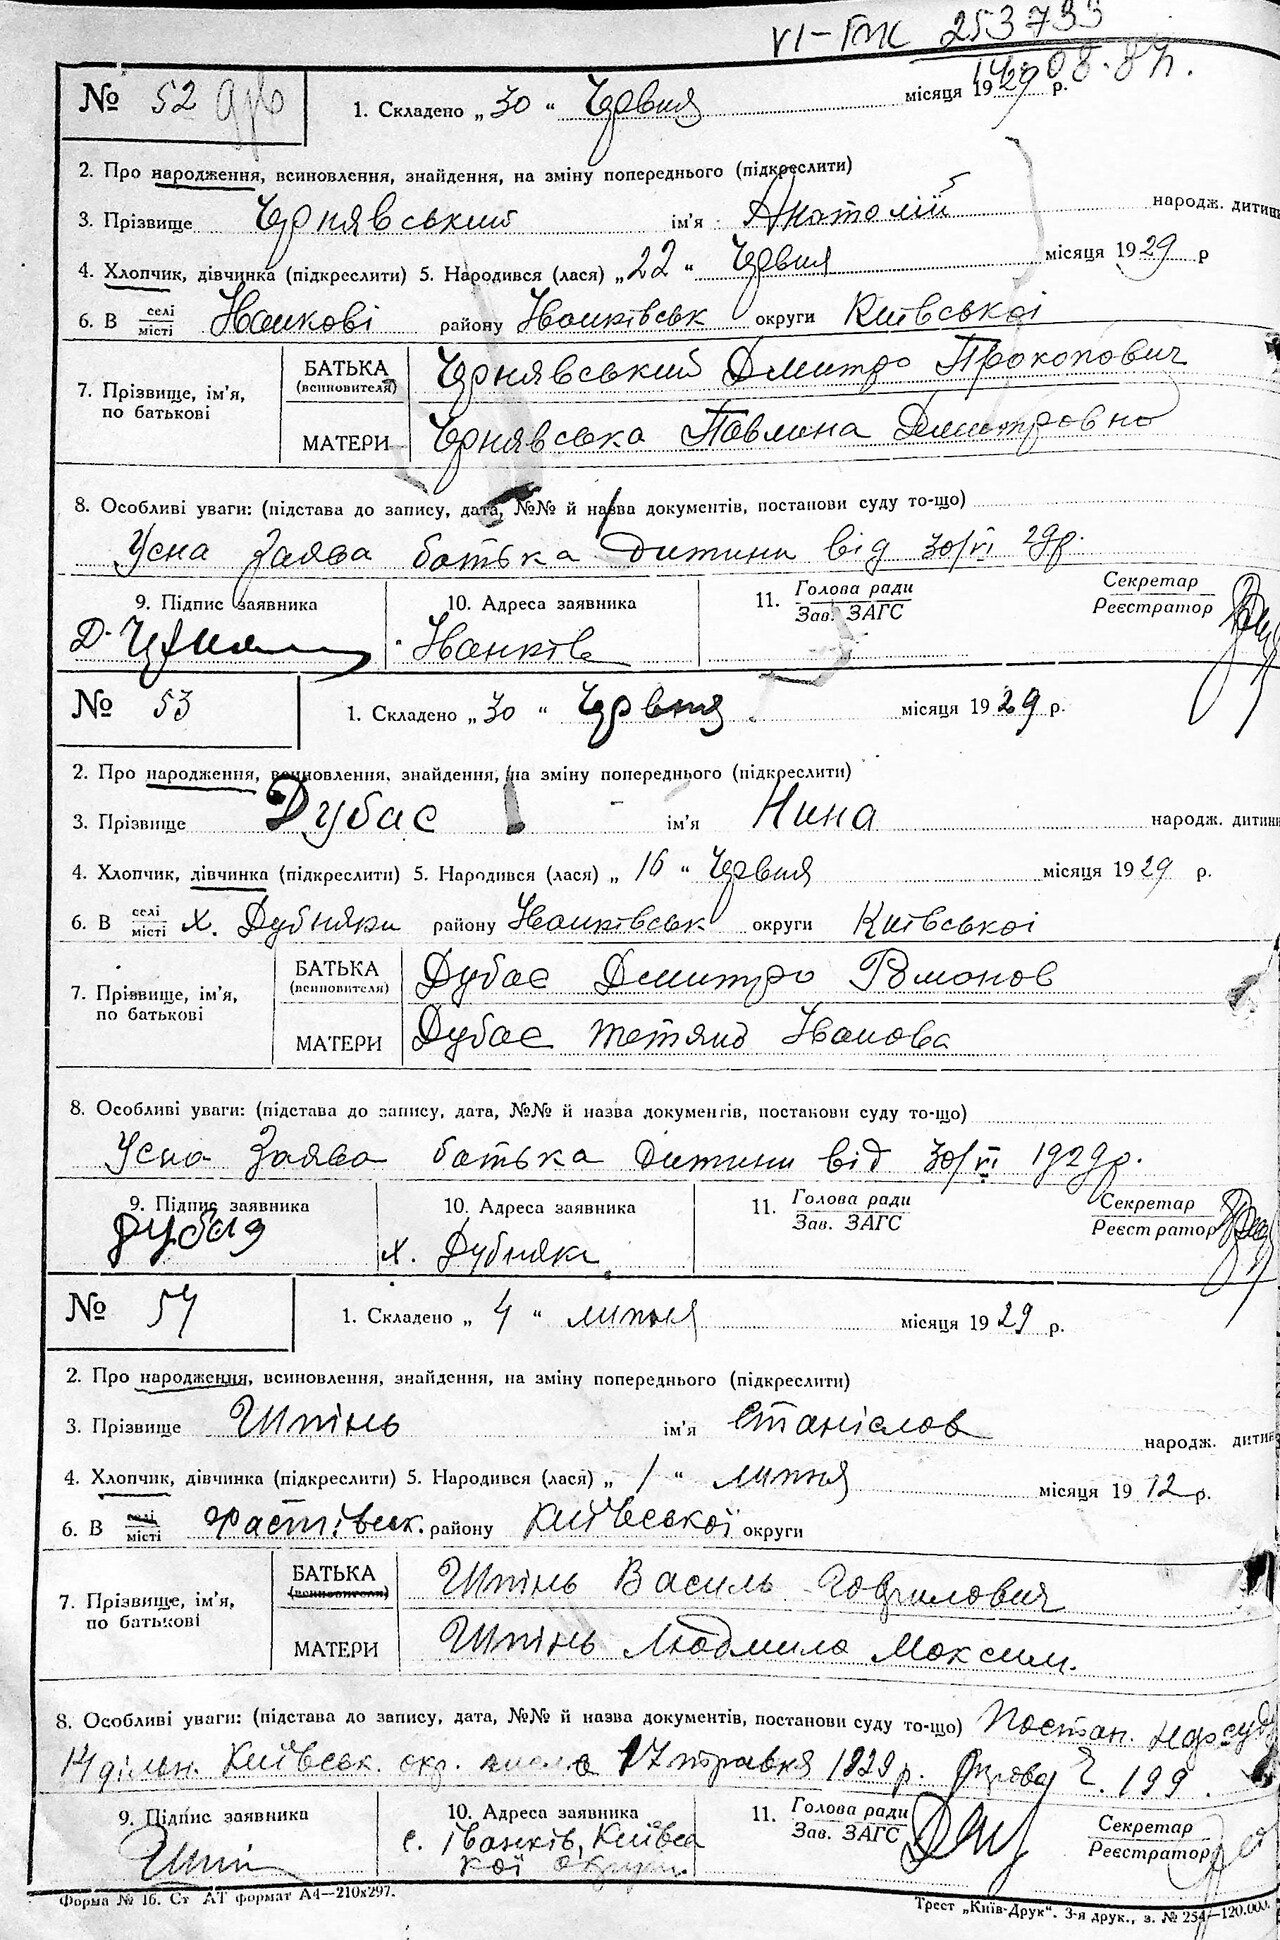 VI-ГМК 253733
14.08.87.
№ 52 1. Складено „ 30 “ Червня місяця 1929 р.
2. Про народження, всиновлення, знайдення, на зміну попереднього (підкреслити)
3. Прізвище Чернявський ім'я Анатолій народж. дитини
4. Хлопчик, дівчинка (підкреслити) 5. Народився (лася) „ 22 “ Червня місяця 1929 р
6. В селі місті Іванкові району Іванківськ округи Київської
7. Прізвище, ім'я, по батькові БАТЬКА (всиновителя) Чернявський Дмитро Прокопович
МАТЕРИ Чернявська Павлина Дмитровна
8. Особливі уваги: (підстава до запису, дата, №№ й назва документів, постанови суду то-що)
Усна Заява батька дитини від 30/VI 29р.
9. Підпис заявника 10. Адреса заявника 11. Голова ради Зав. ЗАГС Секретар Реєстратор
Іванків
№ 53 1. Складено „ 30 “ Червня місяця 1929 р.
2. Про народження, всиновлення, знайдення, на зміну попереднього (підкреслити)
3. Прізвище Дубас ім'я Нина народж. дитини
4. Хлопчик, дівчинка (підкреслити) 5. Народився (лася) „ 16 “ Червня місяця 1929 р.
6. В селі місті х. Дубняки району Іванківськ округи Київської
7. Прізвище, ім'я, по батькові БАТЬКА (всиновителя) Дубас Дмитро Романов
МАТЕРИ Дубас Тетяна Іванова
8. Особливі уваги: (підстава до запису, дата, №№ й назва документів, постанови суду то-що)
Усна Заява батька дитини від 30/VI 1929р.
9. Підпис заявника 10. Адреса заявника 11. Голова ради Зав. ЗАГС Секретар Реєстратор
х. Дубняки
№ 54 1. Складено „ 4 “ липня місяця 1929 р.
2. Про народження, всиновлення, знайдення, на зміну попереднього (підкреслити)
3. Прізвище Шпінь ім'я Станіслав народж. дитини
4. Хлопчик, дівчинка (підкреслити) 5. Народився (лася) „ 1 “ липня місяця 1912 р.
6. В селі місті Фастівськ. району Київської округи
7. Прізвище, ім'я, по батькові БАТЬКА (всиновителя) Шпінь Василь Гаврилович
МАТЕРИ Шпінь Людмила Максим.
8. Особливі уваги: (підстава до запису, дата, №№ й назва документів, постанови суду то-що) Постан. нарсуду
14 дільн. Київськ. окр. 17 травня 1929 р. 199.
9. Підпис заявника 10. Адреса заявника 11. Голова ради Зав. ЗАГС Секретар Реєстратор
Шпінь с. Іванків, Київсь
кої округи.
Форма № 16. Ст АТ формат А4—210x297. Трест „Київ-Друк“. 3-я друк., з. № 254—120.000.